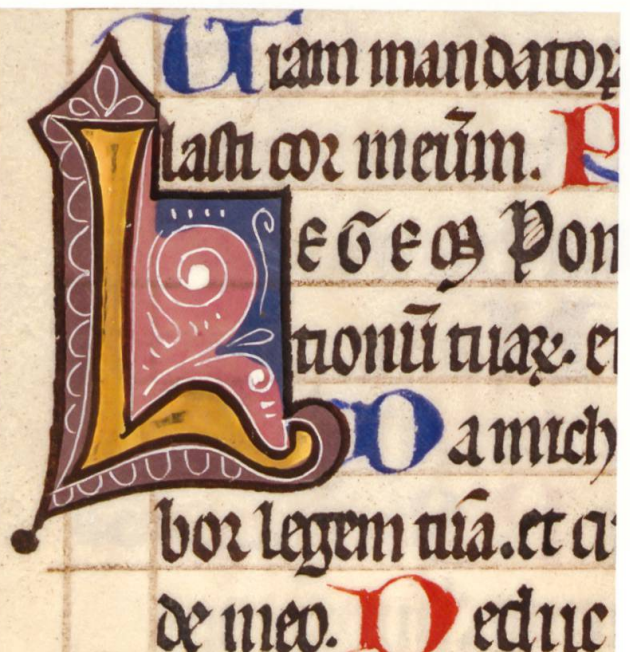 Uiam mandatoꝝ
lasti cor meūm.
LEGEM pon
tionū tuaꝝ. et
Da mich
bor legem tūā. et c
de meo. Deduc